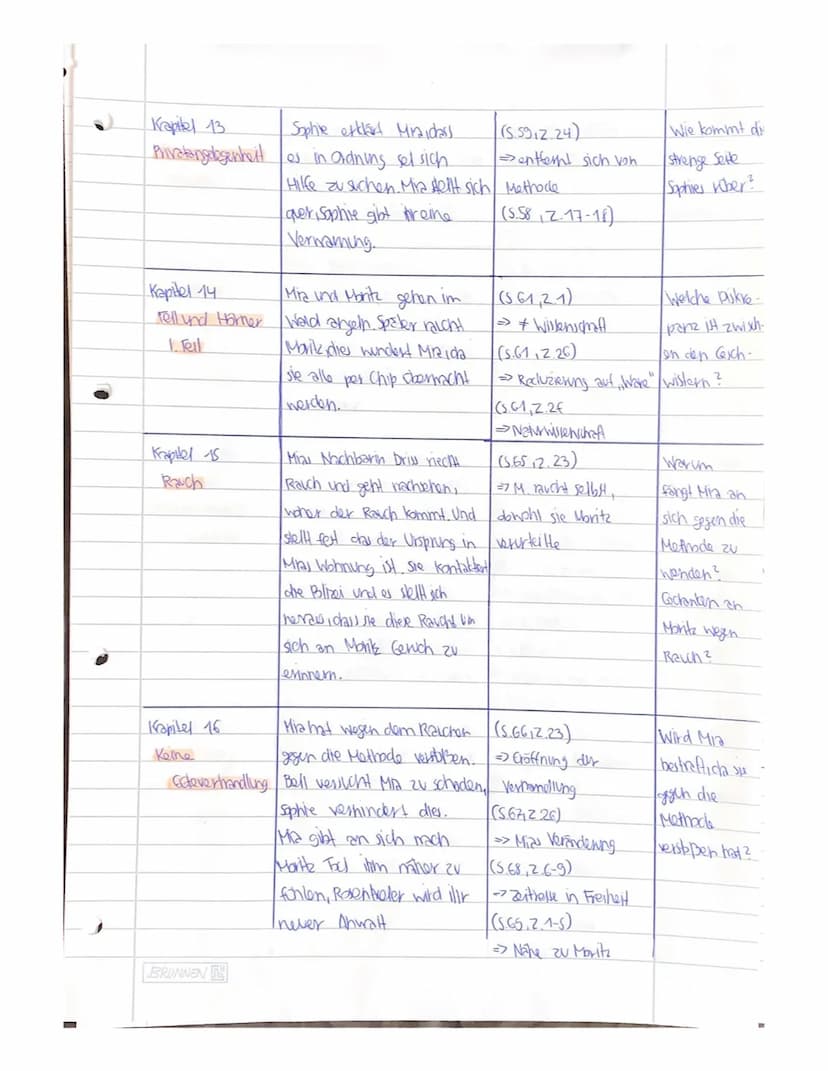 Kapitel 13
Privatangelegenheit
Sophie erklärt Mia, dass
es in Ordnung sei sich
Hilfe zu suchen. Mia stellt sich
quer, Sophie gibt ihr eine
Verwarnung.
(S.59, Z.24)
=> entfernt sich von
Methode
(S.58, Z.17-18)
Wie kommt di
strenge Seite
Sophies rüber?
Kapitel 14
Fell und Hörner
1. Teil
Mia und Moritz gehen im
Wald angeln. Später raucht
Moritz, dies wundert Mia, da
sie alle per Chip überwacht
werden.
(S.61, Z.1)
=> ≠ Wissenschaft
(S.61, Z.26)
=> Reduzierung auf „Ware"
(S.61, Z.26
=> Naturwissenschaft
Welche Diskre-
panz ist zwisch-
en den Gesch-
wistern?
Kapitel 15
Rauch
Mias Nachbarin Driss riecht
Rauch und geht nachsehen,
woher der Rauch kommt. Und
stellt fest das der Ursprung in
Mias Wohnung ist. Sie kontaktiert
die Polizei und es stellt sich
heraus, dass sie diese Raucht um
sich an Moritz Geruch zu
erinnern.
(S.65, Z.23)
=> M. raucht selbst,
obwohl sie Moritz
verurteilte
Warum
fängt Mia an
sich gegen die
Methode zu
wenden?
Gedanken an
Moritz wegen
Rauch?
Kapitel 16
Keine
Güteverhandlung
Mia hat wegen dem Rauchen
gegen die Methode verstoßen.
Bell versucht Mia zu schaden,
Sophie verhindert dies.
Mia gibt an sich nach
Moritz Tod ihm näher zu
fühlen, Rosentreter wird ihr
neuer Anwalt
(S.66, Z.23)
=> Eröffnung der
Verhandlung
(S.67, Z.26)
=> Mias Veränderung
(S.68, Z.6-9)
-> Zeithelle in Freiheit
(S.69, Z.1-5)
=> Nähe zu Moritz
Wird Mia
bestraft, da sie
gegen die
Methode
verstoßen hat?
BRUNNEN